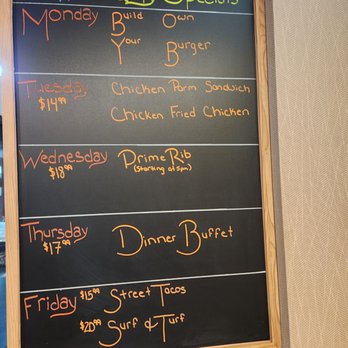 Specials
Monday Build Own
Your Burger
Tuesday Chicken Parm Sandwich
$14.99 Chicken Fried Chicken
Wednesday Prime Rib
$18.99 (Starting at 5pm)
Thursday
$17.99 Dinner Buffet
Friday $15.99 Street Tacos
$20.99 Surf & Turf